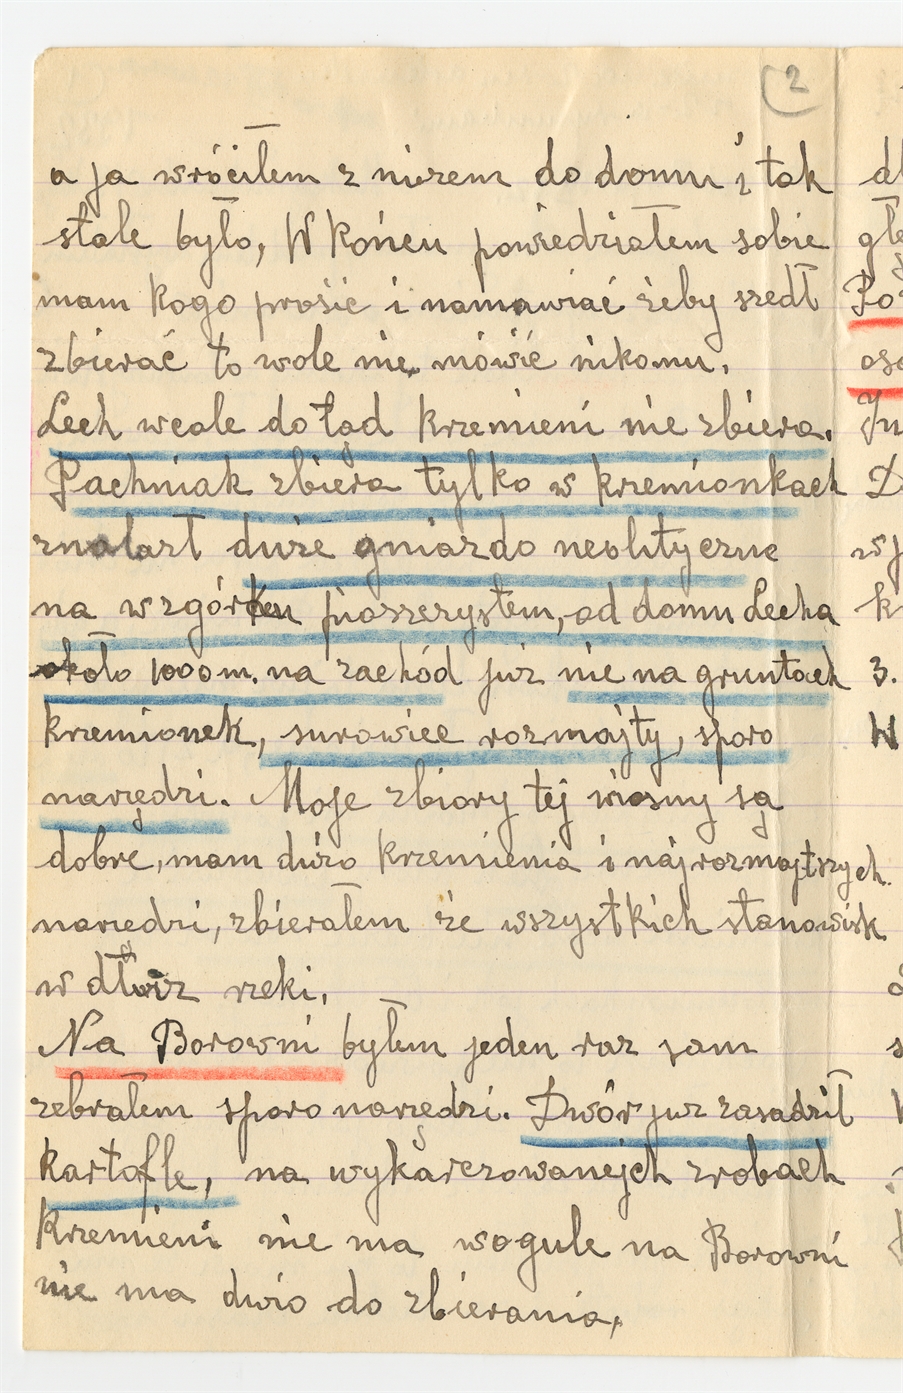 2
a ja wróciłem z niczem do domu i tak
stale było, W końcu powiedziałem sobie
mam kogo prosić i namawiać żeby szedł
zbierać to wole nie mówić nikomu.
Lech wcale dotąd krzemieni nie zbiera.
Pachniak zbiera tylko w krzemionkach
znalazł duże gniazdo neolityczne
na wzgórku piaszczystem, od domu Lecha
około 1000 m. na zachód już nie na gruntach
krzemionek, surowiec rozmajty, sporo
narzędzi. Moje zbiory tej wiosny są
dobre, mam dużo krzemienia i najrozmajtszych
narzedzi, zbierałem ze wszystkich stanowisk
w dłuż rzeki.
Na Borowni byłem jeden raz sam
zebrałem sporo narzędzi. Dwór już zasadził
kartofle, na wykarczowanejch zrobach
krzemieni nie ma wogule na Borowni
nie ma dużo do zbierania,